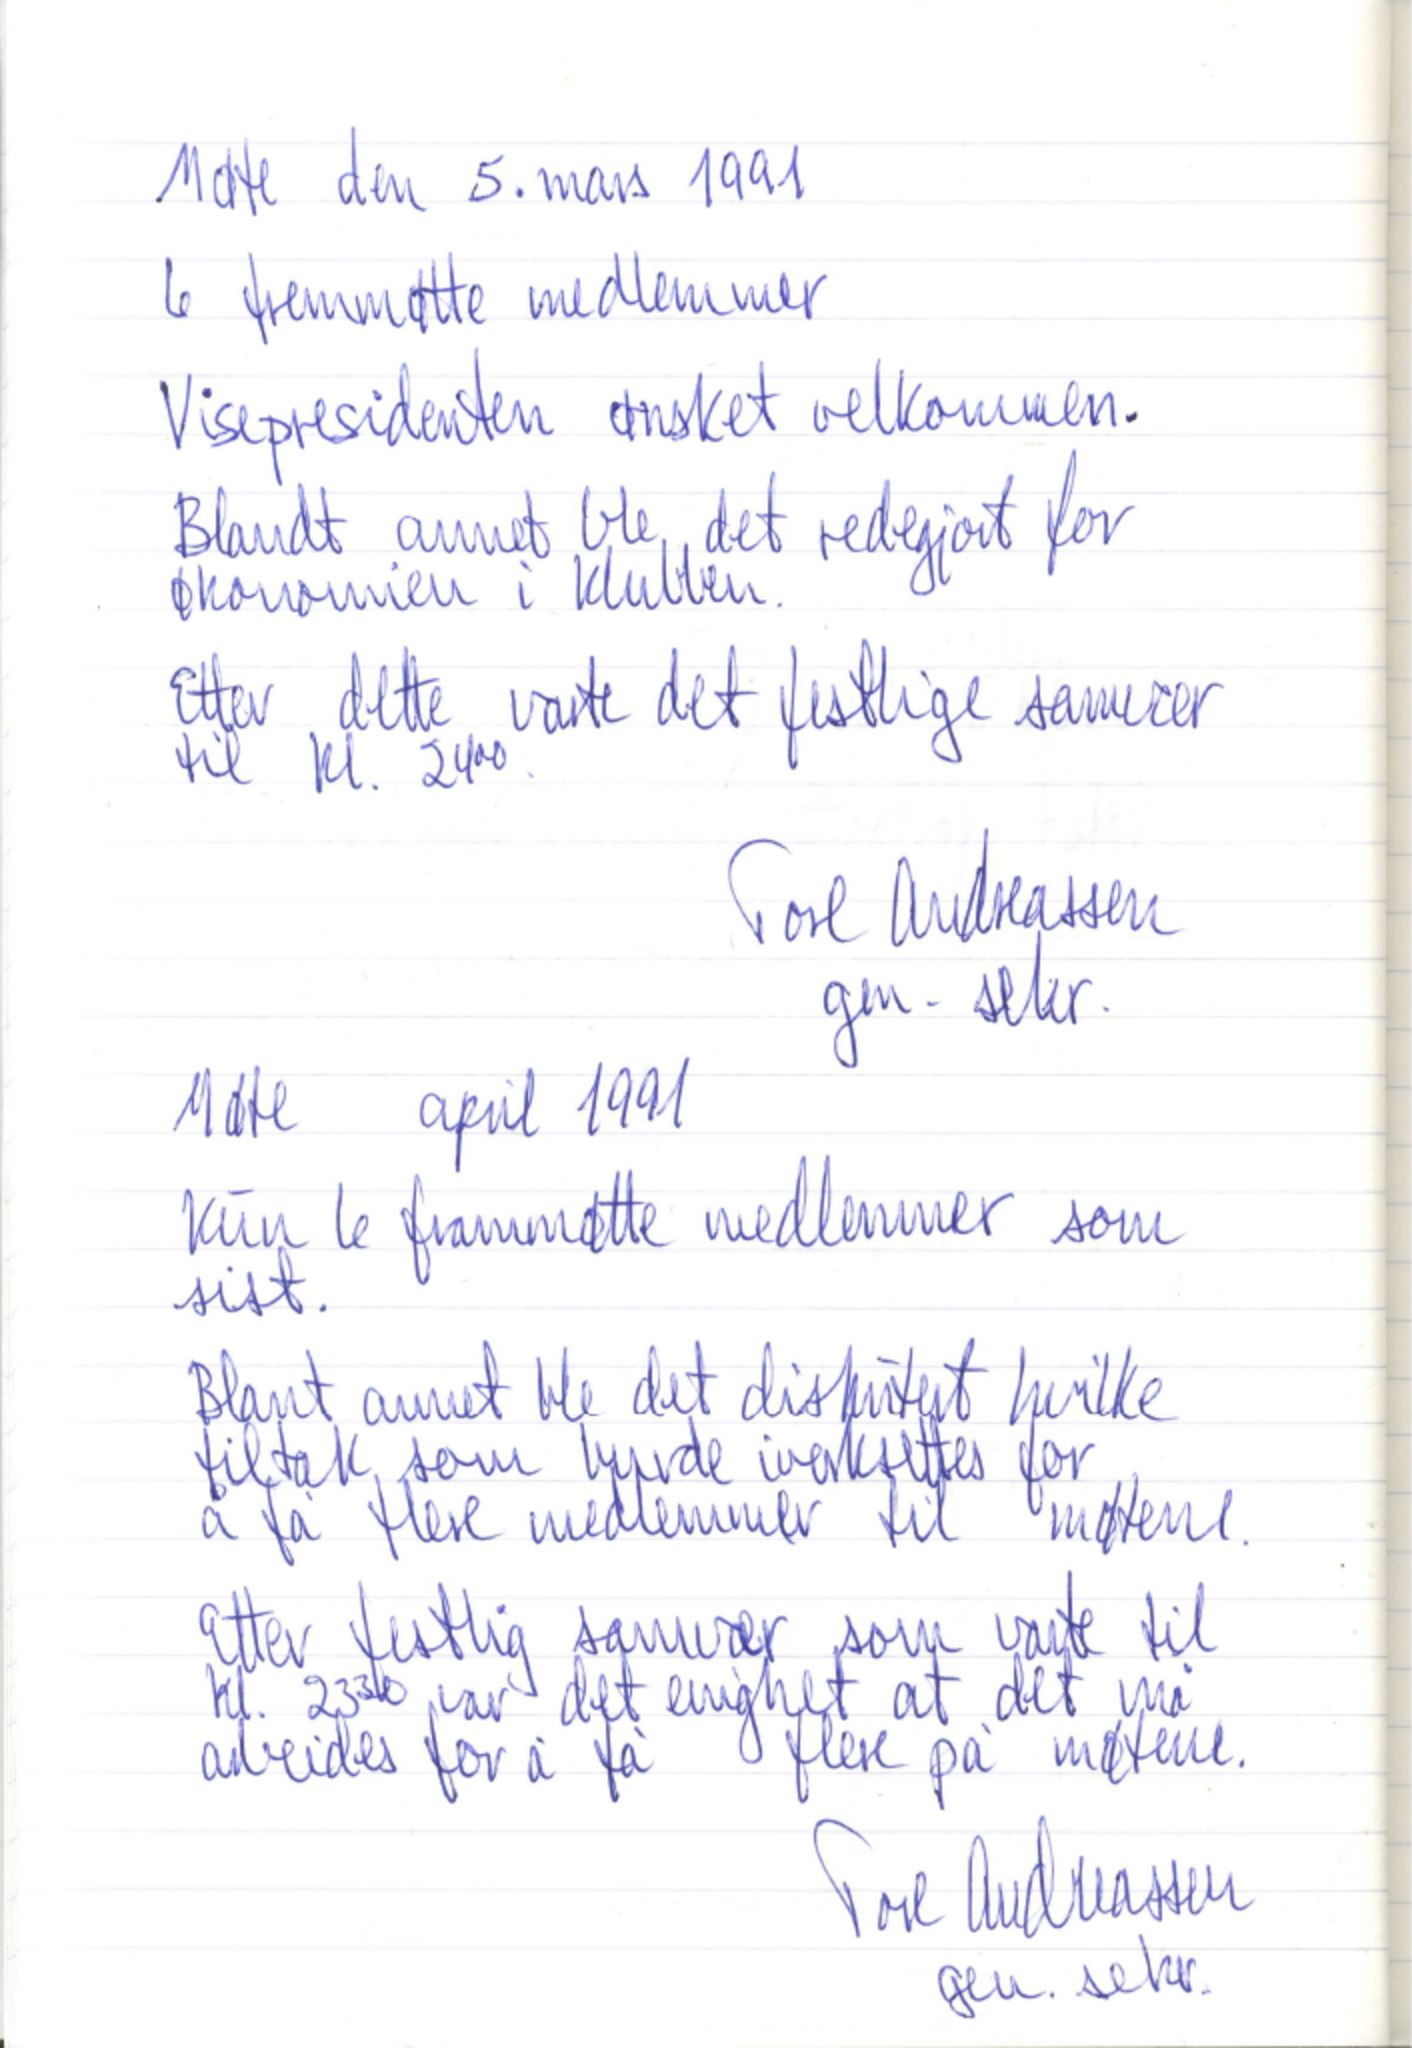 Møte den 5. mars 1991
6 fremmøtte medlemmer
Visepresidenten ønsket velkommen.
Blandt annet ble det redegjort for
økonomien i klubben.
Etter dette varte det festlige samvær
til kl. 24⁰⁰.
Tore Andreassen
gen. sekr.
Møte april 1991
Kūn 6 frammøtte medlemmer som
sist.
Blant annet ble det diskūtert hvilke
tiltak som burde iverksettes for
å få flere medlemmer til møtene.
Etter festlig samvær som varte til
kl. 23³⁰ var det enighet at det må
arbeides for å få flere på møtene.
Tore Andreassen
gen. sekr.